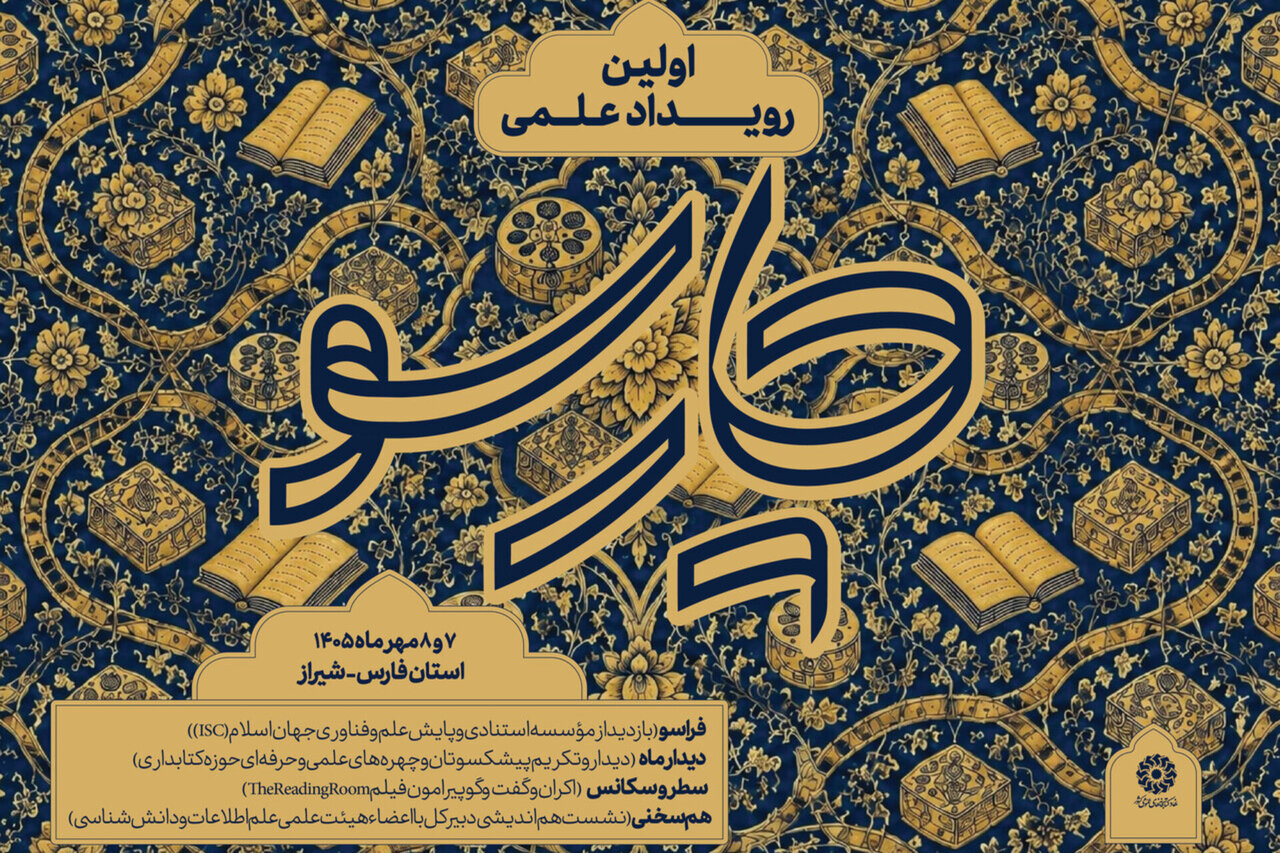 اولین
رویـــداد علـــمی
پارسو
۷ و ۸ مهر ماه ۱۴۰۵
استان فارس - شیراز
فراسو (بازدید از مؤسسه استنادی و پایش علم و فناوری جهان اسلام (ISC))
دیدار ماه (دیدار و تکریم پیشکسوتان و چهره‌های علمی و حرفه‌ای حوزه کتابداری)
سطر و سکانس (اکران و گفت و گو پیرامون فیلم The Reading Room)
هم‌سخنی (نشست هم اندیشی دبیرکل با اعضاء هیئت علمی علم اطلاعات و دانش شناسی)